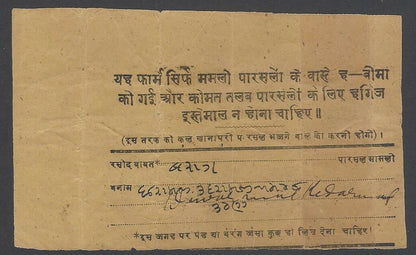 यह फार्म सिर्फ ममूली पारसलों के वास्ते है—बीमा
की गई और कीमत तलब पारसलों के लिए हर्गिज
इस्तेमाल न होना चाहिए॥
(इस तरफ की कुल खानापुरी पारसल भेजने वाले को करनी होगी)।
रसीद बाबत* पारसल मामूली
बनाम
*इस जगह पर पेड या बैरंग जैसा कुछ हो लिख देना चाहिए।